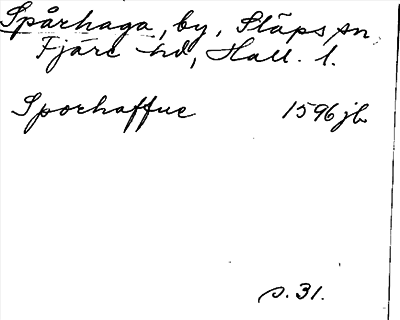 Spårhaga, by, Släps sn.
Fjäre hd, Hall. l.
Sporhaffue 1596 jb
s. 31.